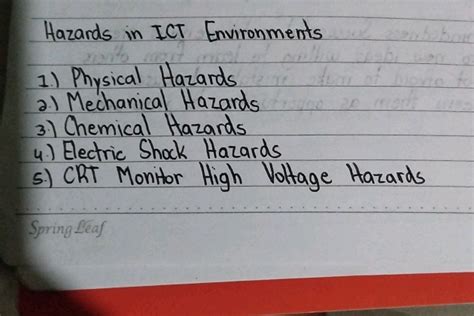 Hazards in ICT Environments
1.) Physical Hazards
2.) Mechanical Hazards
3.) Chemical Hazards
4.) Electric Shock Hazards
5.) CRT Monitor High Voltage Hazards
Spring Leaf